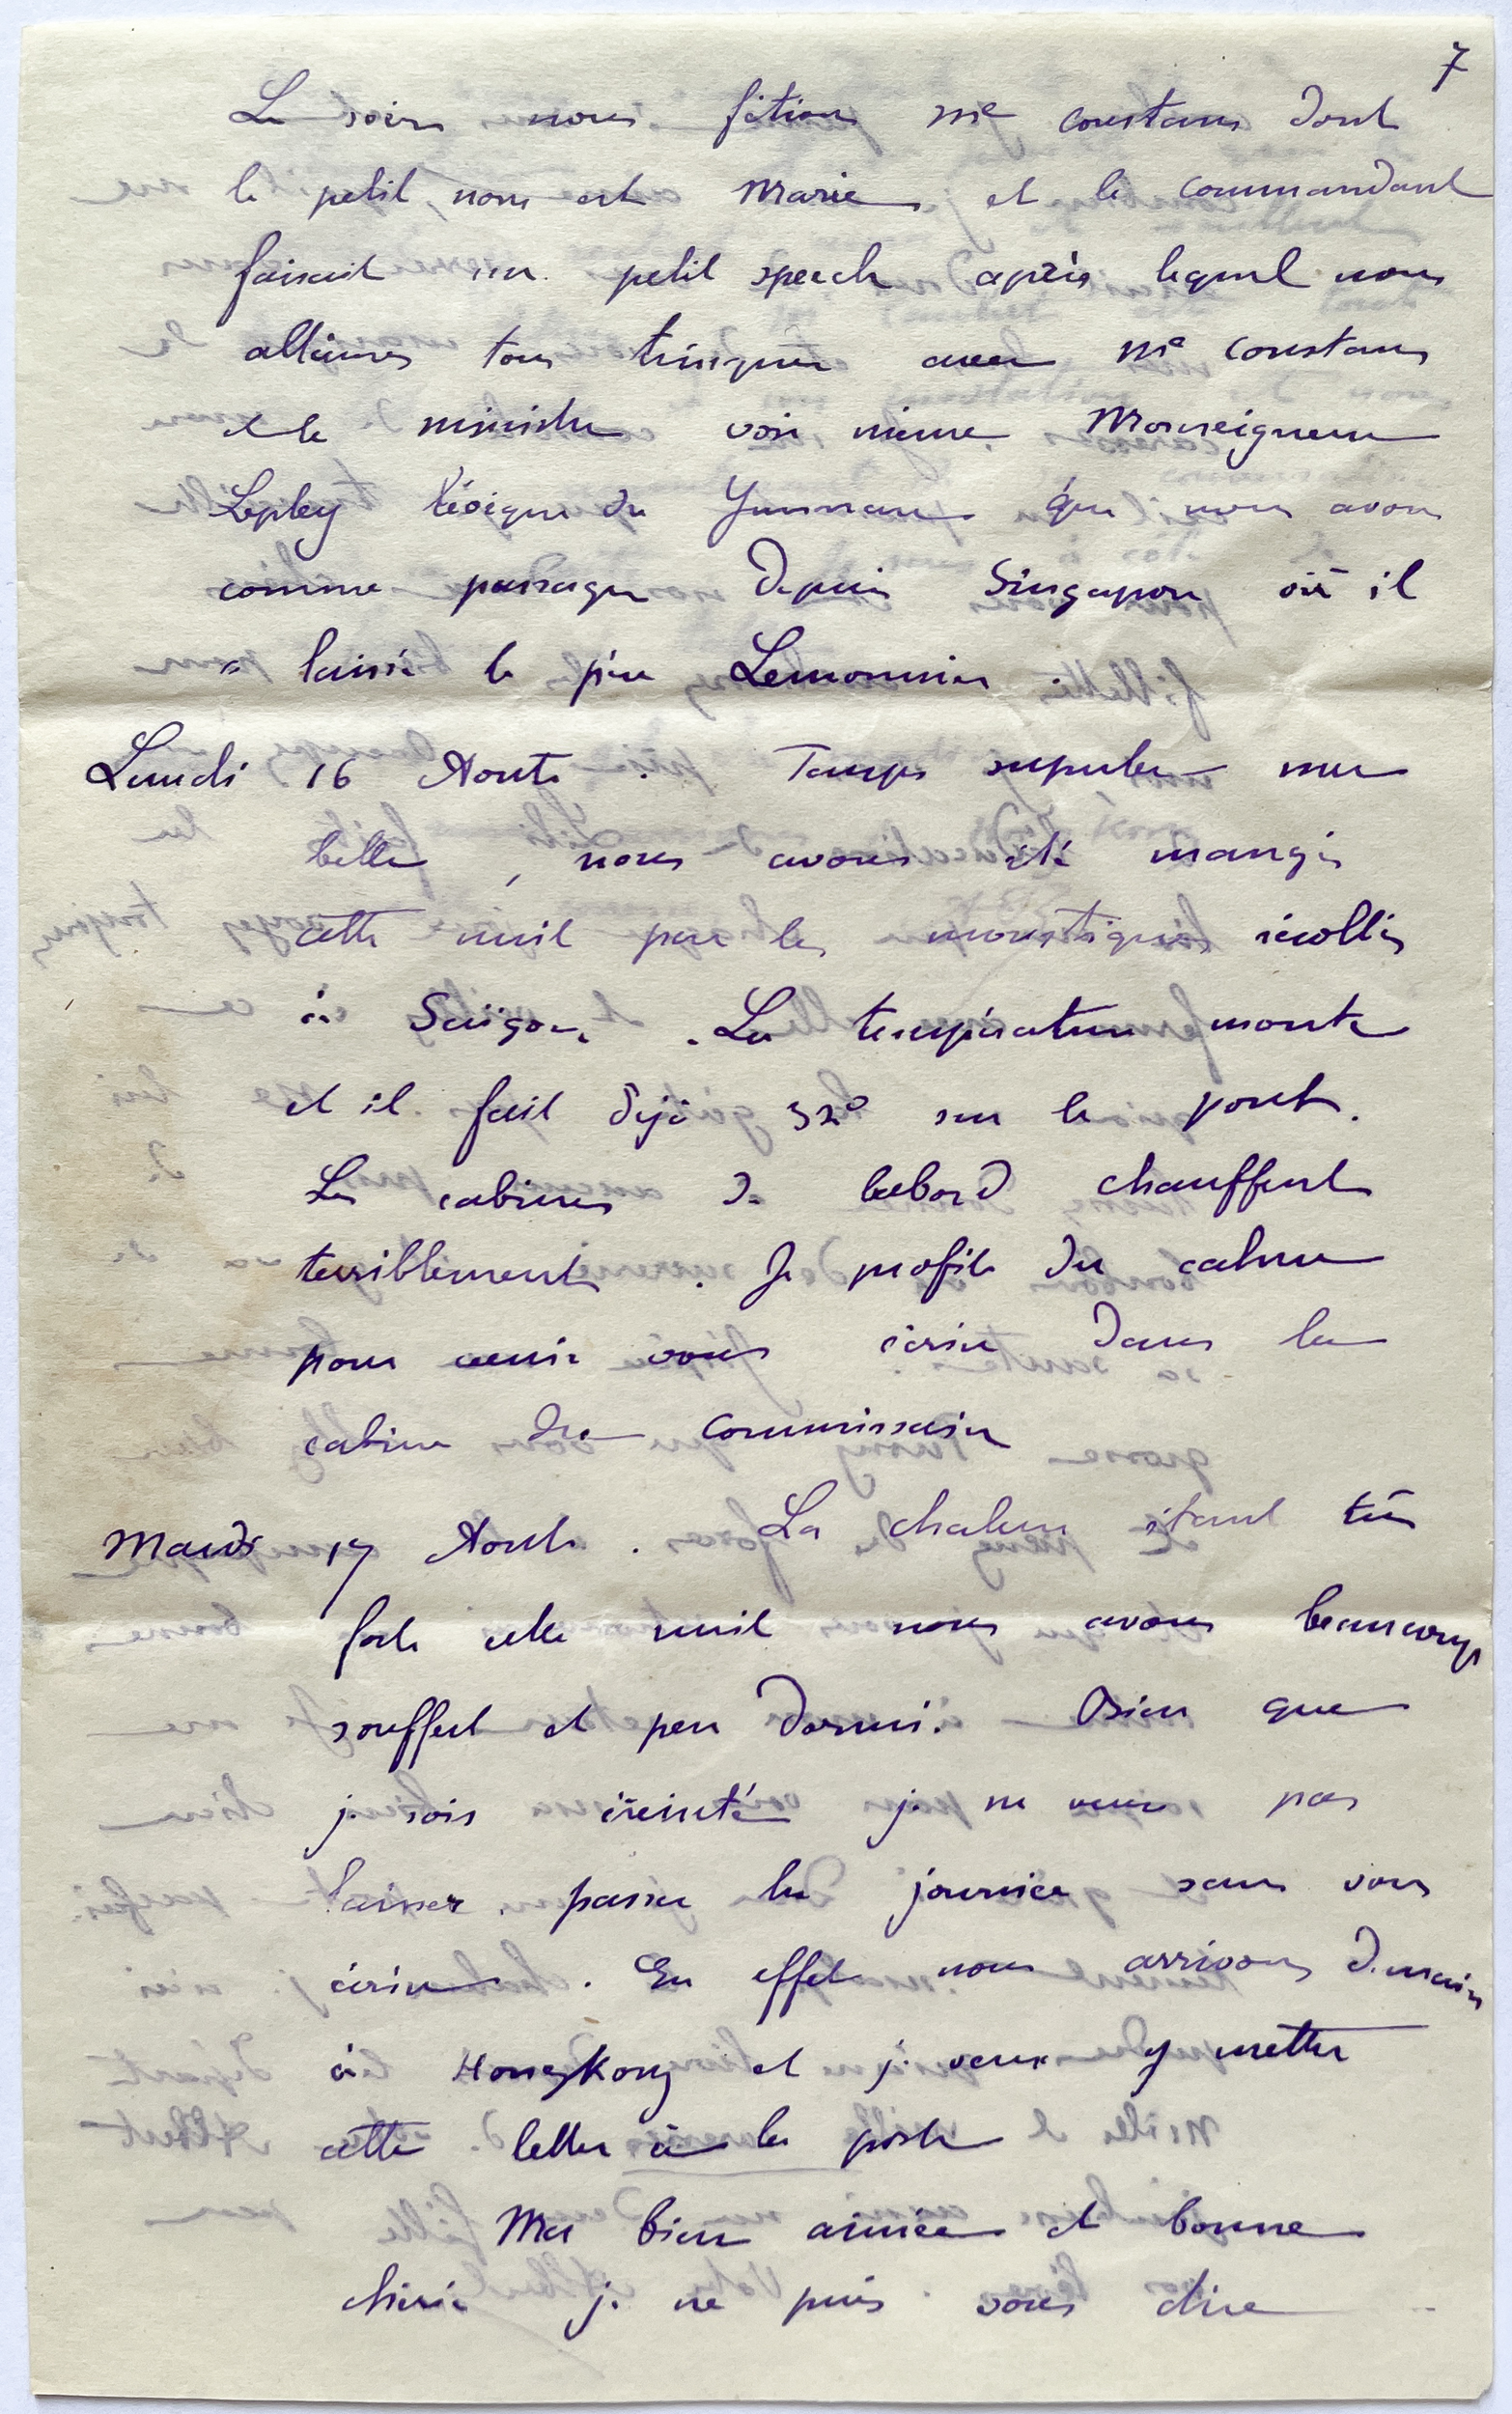 7
Le soir nous fêtions Me Constans dont
le petit nom est Marie et le commandant
faisait un petit speech après lequel nous
allâmes tous trinquer avec Me Constans
et le ministre voir même Monseigneur
l'évêque du Yunnan que nous avons
comme passager depuis Singapore où il
a laissé le père Lemonnier.
Lundi 16 Août. Temps superbe mer
belle, nous avons été mangés
cette nuit par les moustiques récoltés
à Saïgon. La température monte
et il fait déjà 32° sur le pont.
Les cabines de babord chauffent
terriblement. Je profite du calme
pour venir vous écrire dans la
cabine du commissaire
Mardi 17 Août. La chaleur étant très
forte cette nuit nous avons beaucoup
souffert et peu dormi. Bien que
je sois éreinté je ne veux pas
laisser passer la journée sans vous
écrire. En effet nous arrivons demain
à HongKong et je veux y mettre
cette lettre à la poste
Ma bien aimée et bonne
chérie je ne puis vous dire